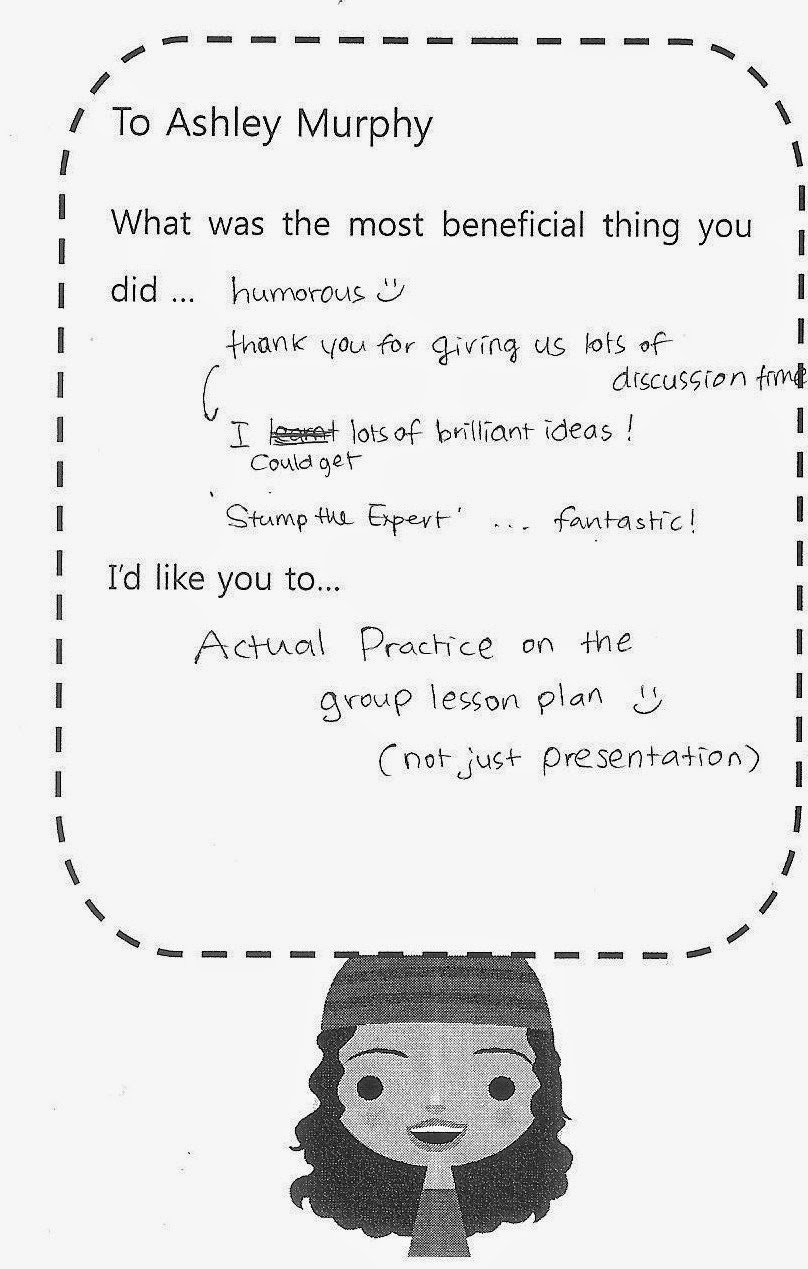 To Ashley Murphy
What was the most beneficial thing you
did ... humorous
thank you for giving us lots of
discussion time
I learnt lots of brilliant ideas !
Could get
'Stump the Expert' ... fantastic!
I'd like you to...
Actual Practice on the
group lesson plan
(not just presentation)